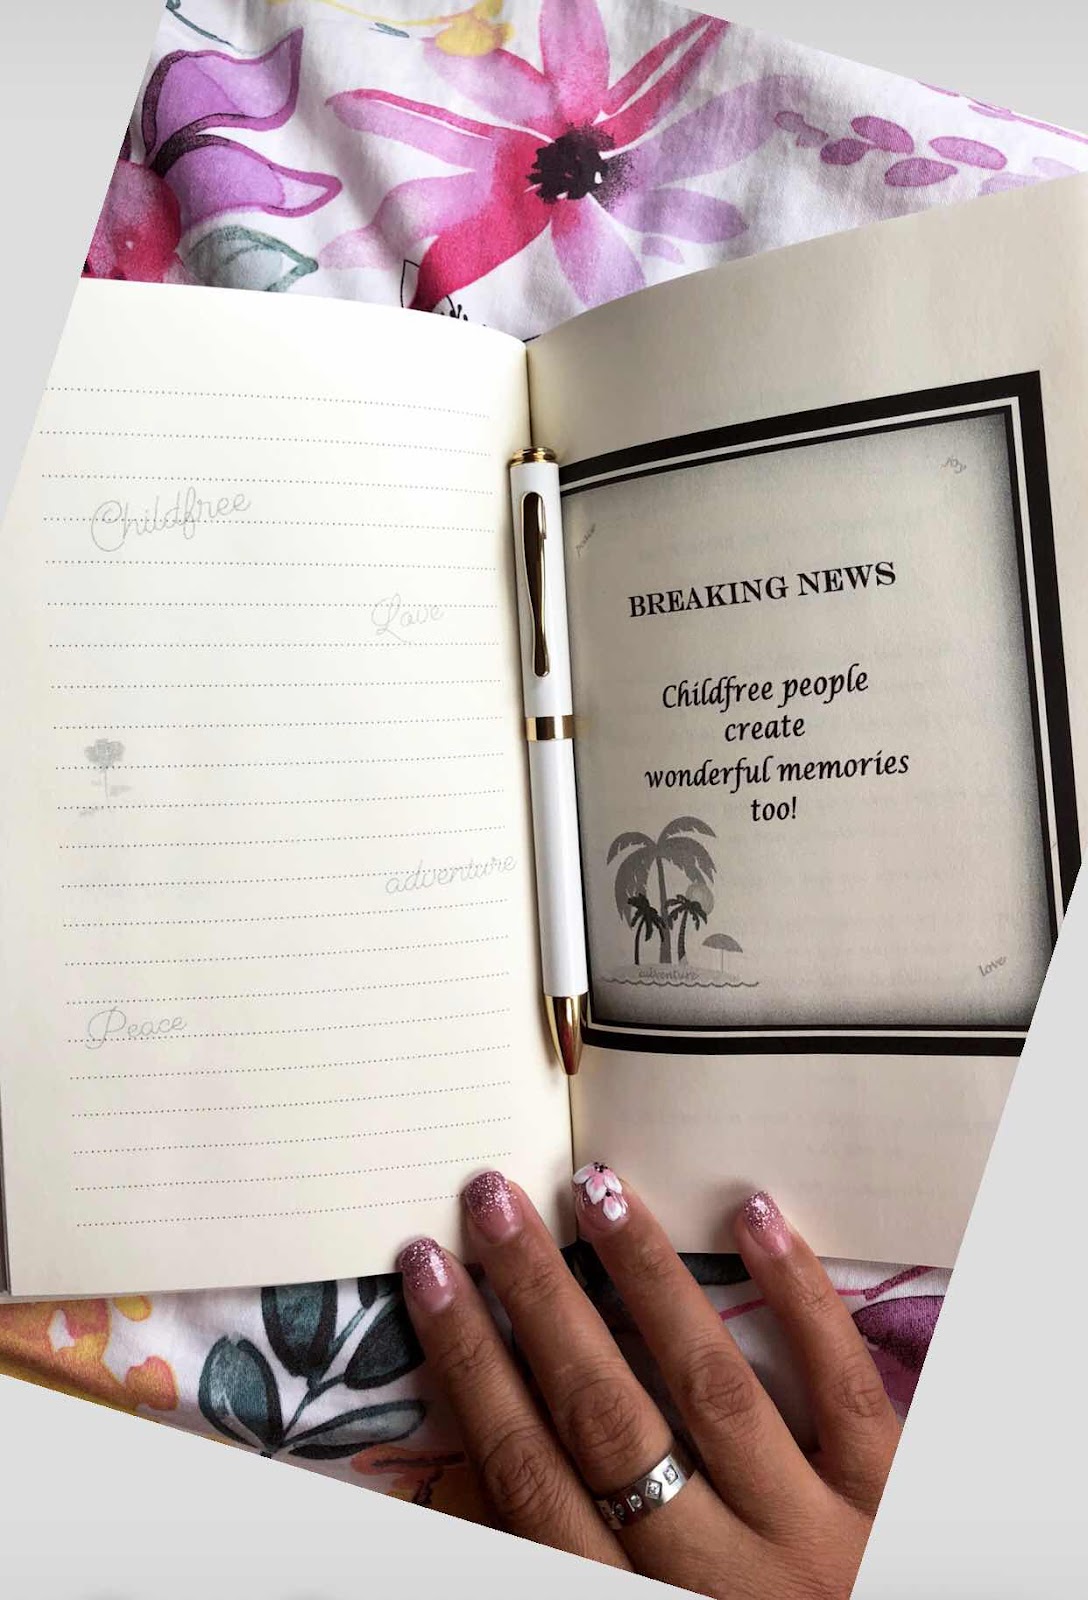 Childfree
Love
adventure
Peace
joy
peace
BREAKING NEWS
Childfree people
create
wonderful memories
too!
adventure
love